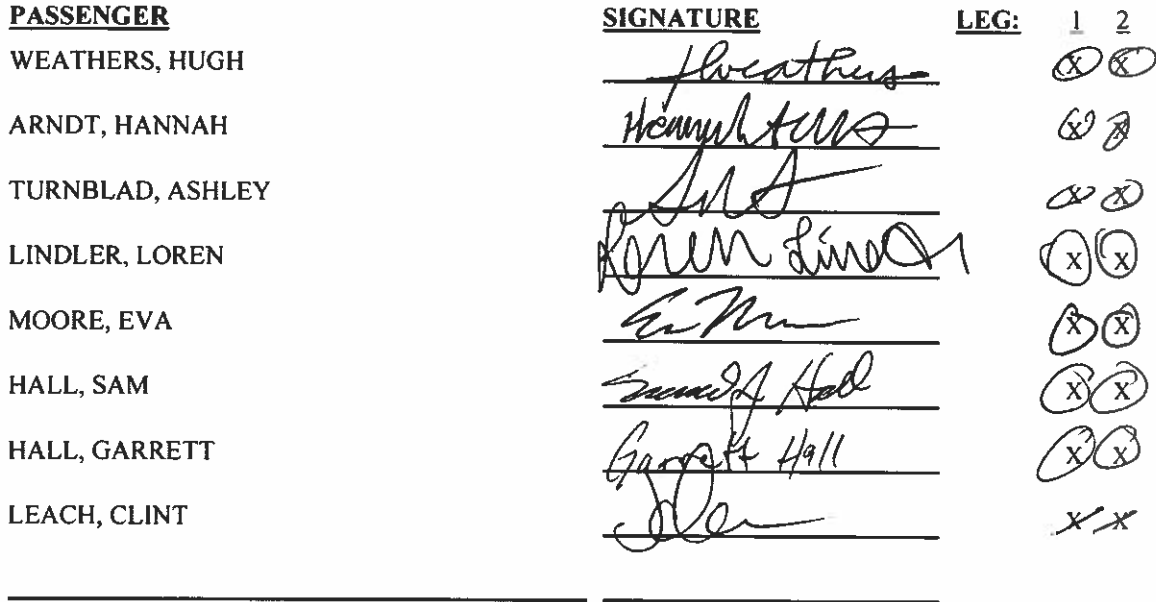 PASSENGER SIGNATURE LEG: 1 2
WEATHERS, HUGH HWeathers X X
ARNDT, HANNAH Hannah X X
TURNBLAD, ASHLEY X X
LINDLER, LOREN Loren Lindler X X
MOORE, EVA X X
HALL, SAM Hall X X
HALL, GARRETT Garrett Hall X X
LEACH, CLINT X X